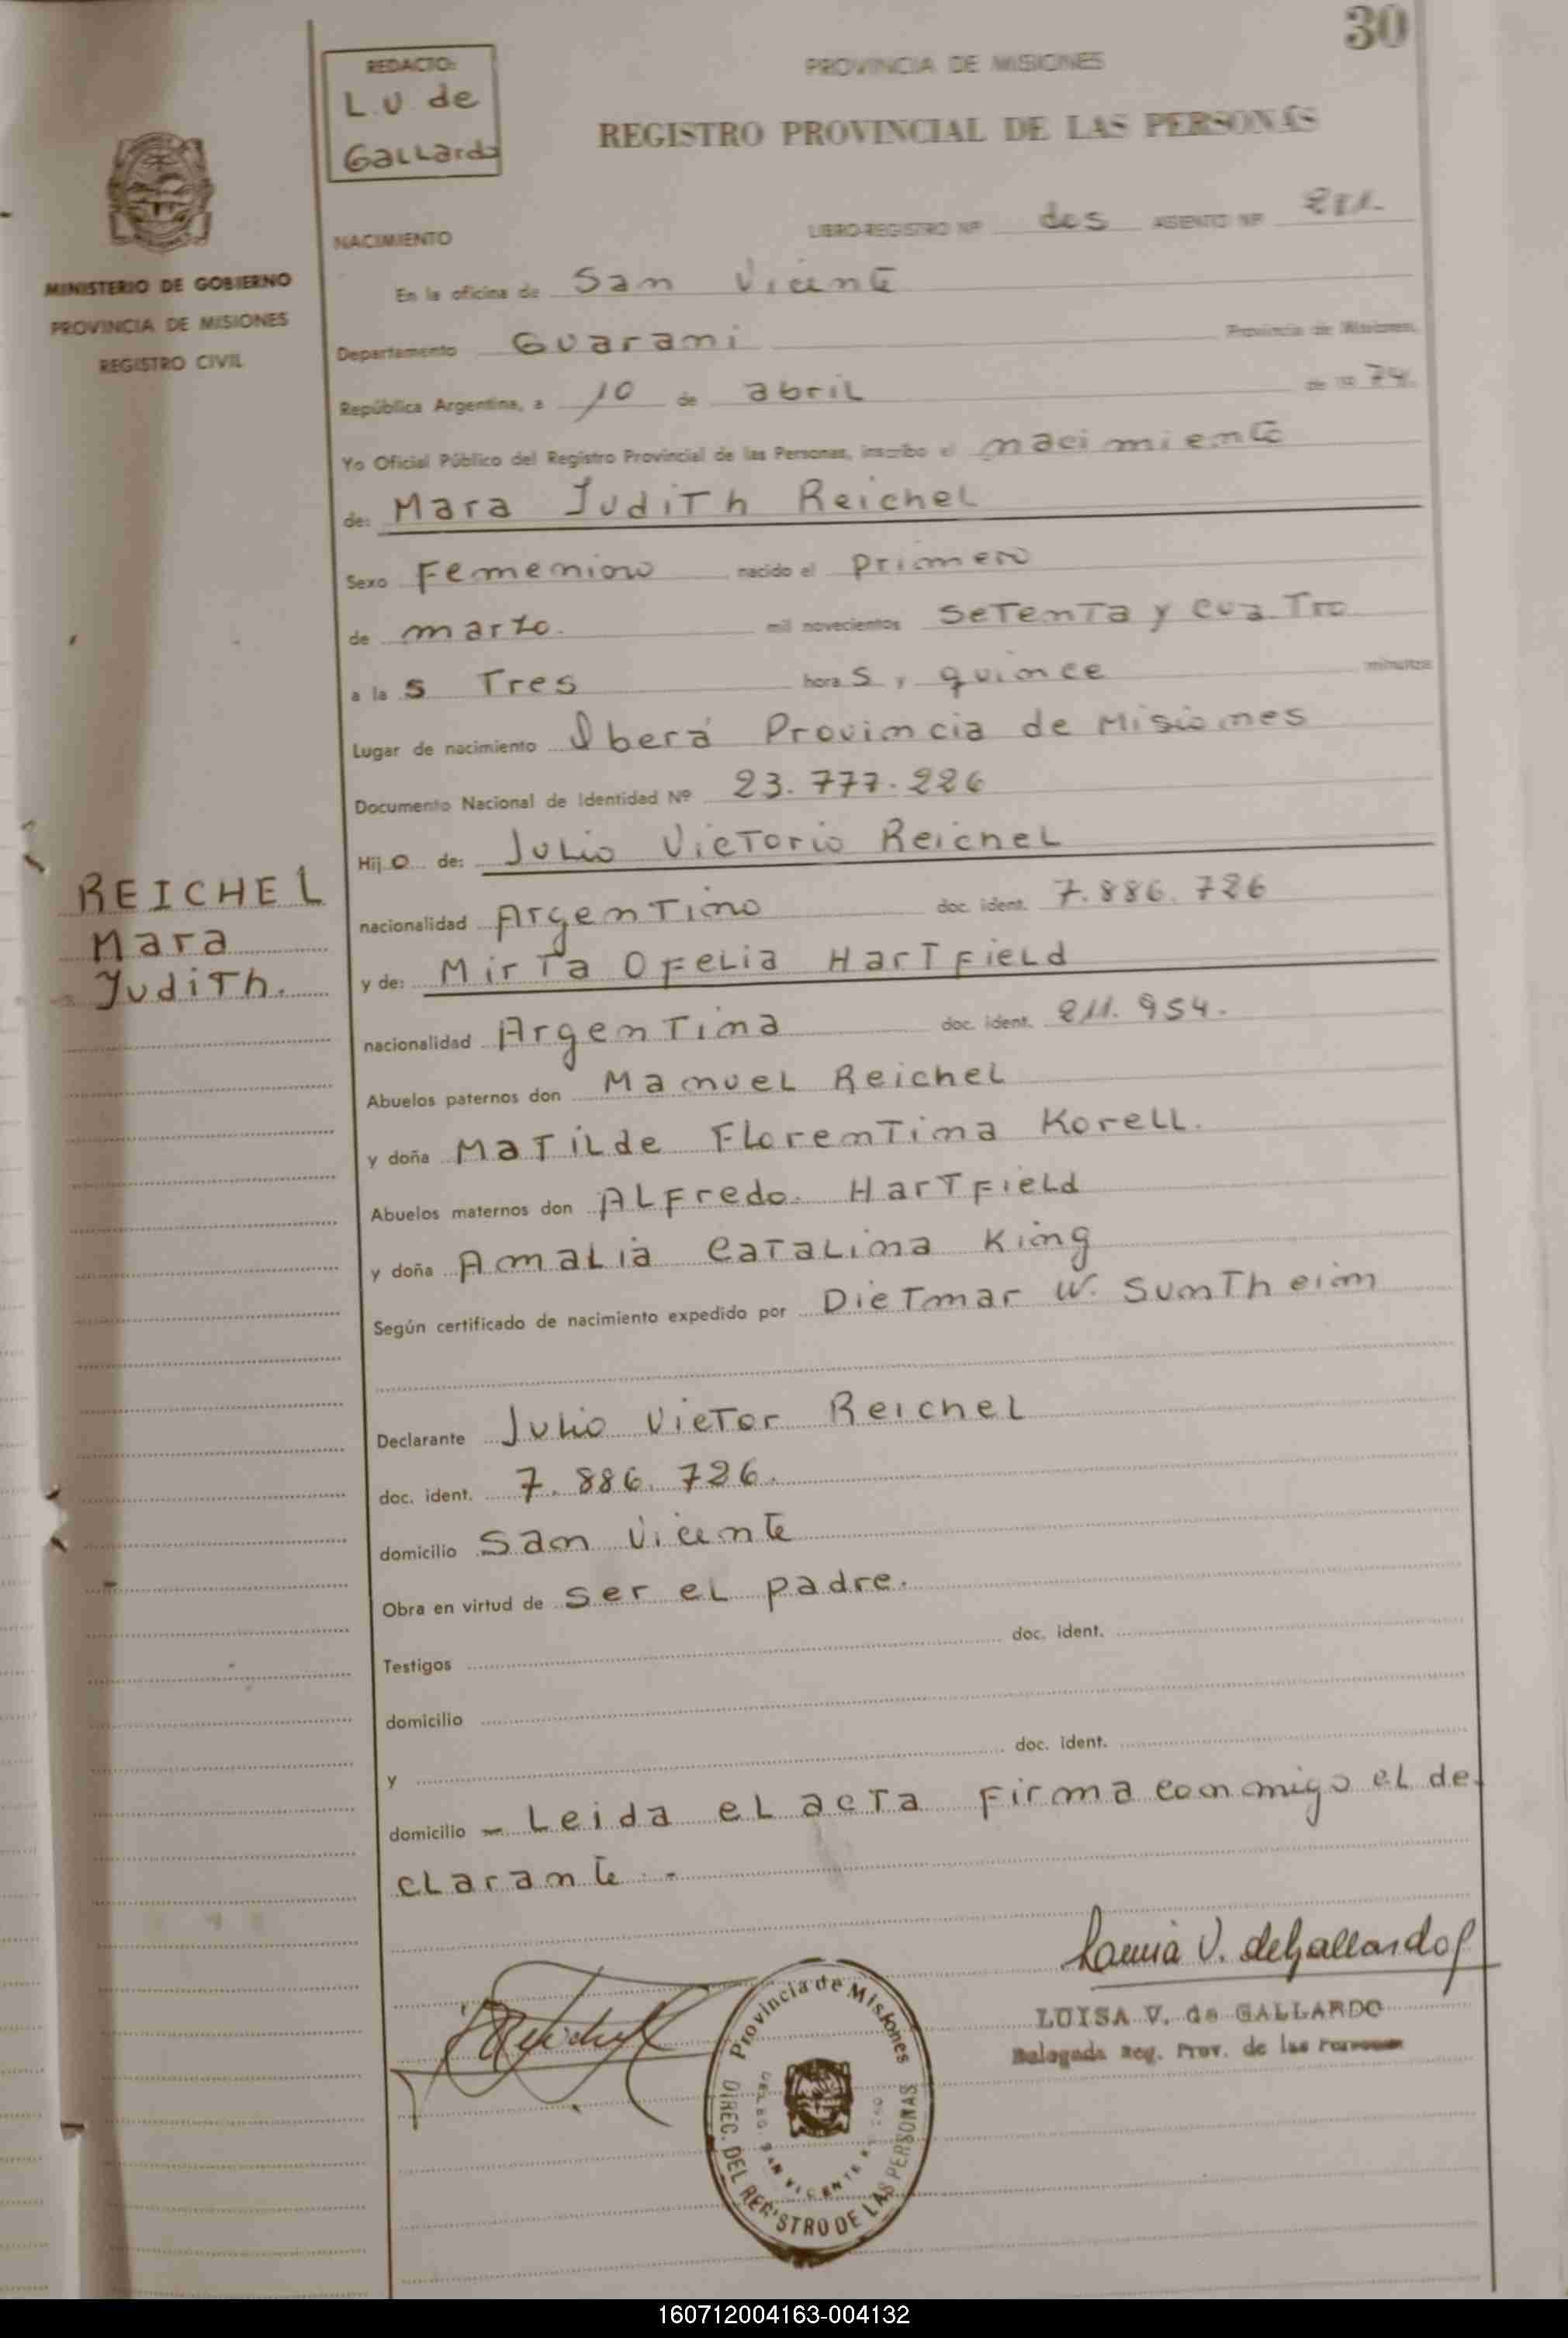 30
REDACTO:
L.U. de
Gallardo
PROVINCIA DE MISIONES
REGISTRO PROVINCIAL DE LAS PERSONAS
MINISTERIO DE GOBIERNO
PROVINCIA DE MISIONES
REGISTRO CIVIL
NACIMIENTO LIBRO-REGISTRO Nº dos ASIENTO Nº
En la oficina de San Vicente
Departamento Guarani Provincia de Misiones,
República Argentina, a 10 de abril de 19 74.
Yo Oficial Público del Registro Provincial de las Personas, inscribo el nacimiento
de: Mara Judith Reichel
Sexo Femenino nacido el primero
de marzo. mil novecientos setenta y cuatro
a la s Tres hora s y quince minutos
Lugar de nacimiento Iberá Provincia de Misiones
Documento Nacional de Identidad Nº 23.777.226
Hij o de: Julio Victorio Reichel
nacionalidad Argentino doc. ident. 7.886.726
y de: Mirta Ofelia Hartfield
nacionalidad Argentina doc. ident. 211.954.
Abuelos paternos don Manuel Reichel
y doña Matilde Florentina Korell.
Abuelos maternos don Alfredo. Hartfield
y doña Amalia Catalina King
Según certificado de nacimiento expedido por Dietmar W. Suntheim
REICHEL
Mara
Judith.
Declarante Julio Victor Reichel
doc. ident. 7.886.726.
domicilio San Vicente
Obra en virtud de ser el padre.
Testigos doc. ident.
domicilio
y doc. ident.
domicilio – Leida el acta firma conmigo el de
clarante.-
Reichel
Luisa V. de Gallardo
LUISA V. de GALLARDO
Delegada Reg. Prov. de las Personas
Provincia de Misiones
DIREC. DEL REGISTRO DE LAS PERSONAS
DELEG. SAN VICENTE
160712004163-004132